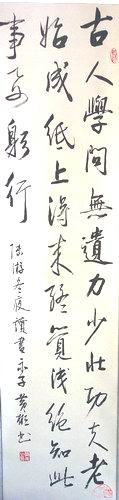 古人學問無遺力少壯功夫老
始成紙上得来終覺淺絕知此
事要躬行
陸游冬夜讀書示子 黄彬書